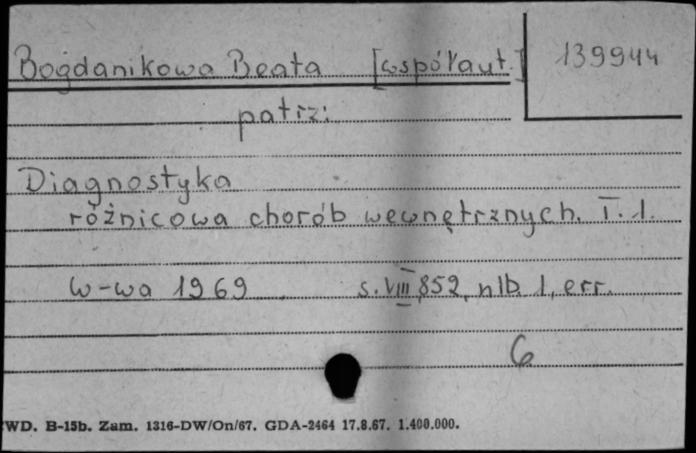 Bogdanikowa Beata [współaut.] 139944
patrz:
Diagnostyka
różnicowa chorób wewnętrznych. T. 1.
W-wa 1969 s. VIII, 852, nlb 1, err.
6
WD. B-15b. Zam. 1316-DW/On/67. GDA-2464 17.8.67. 1.400.000.